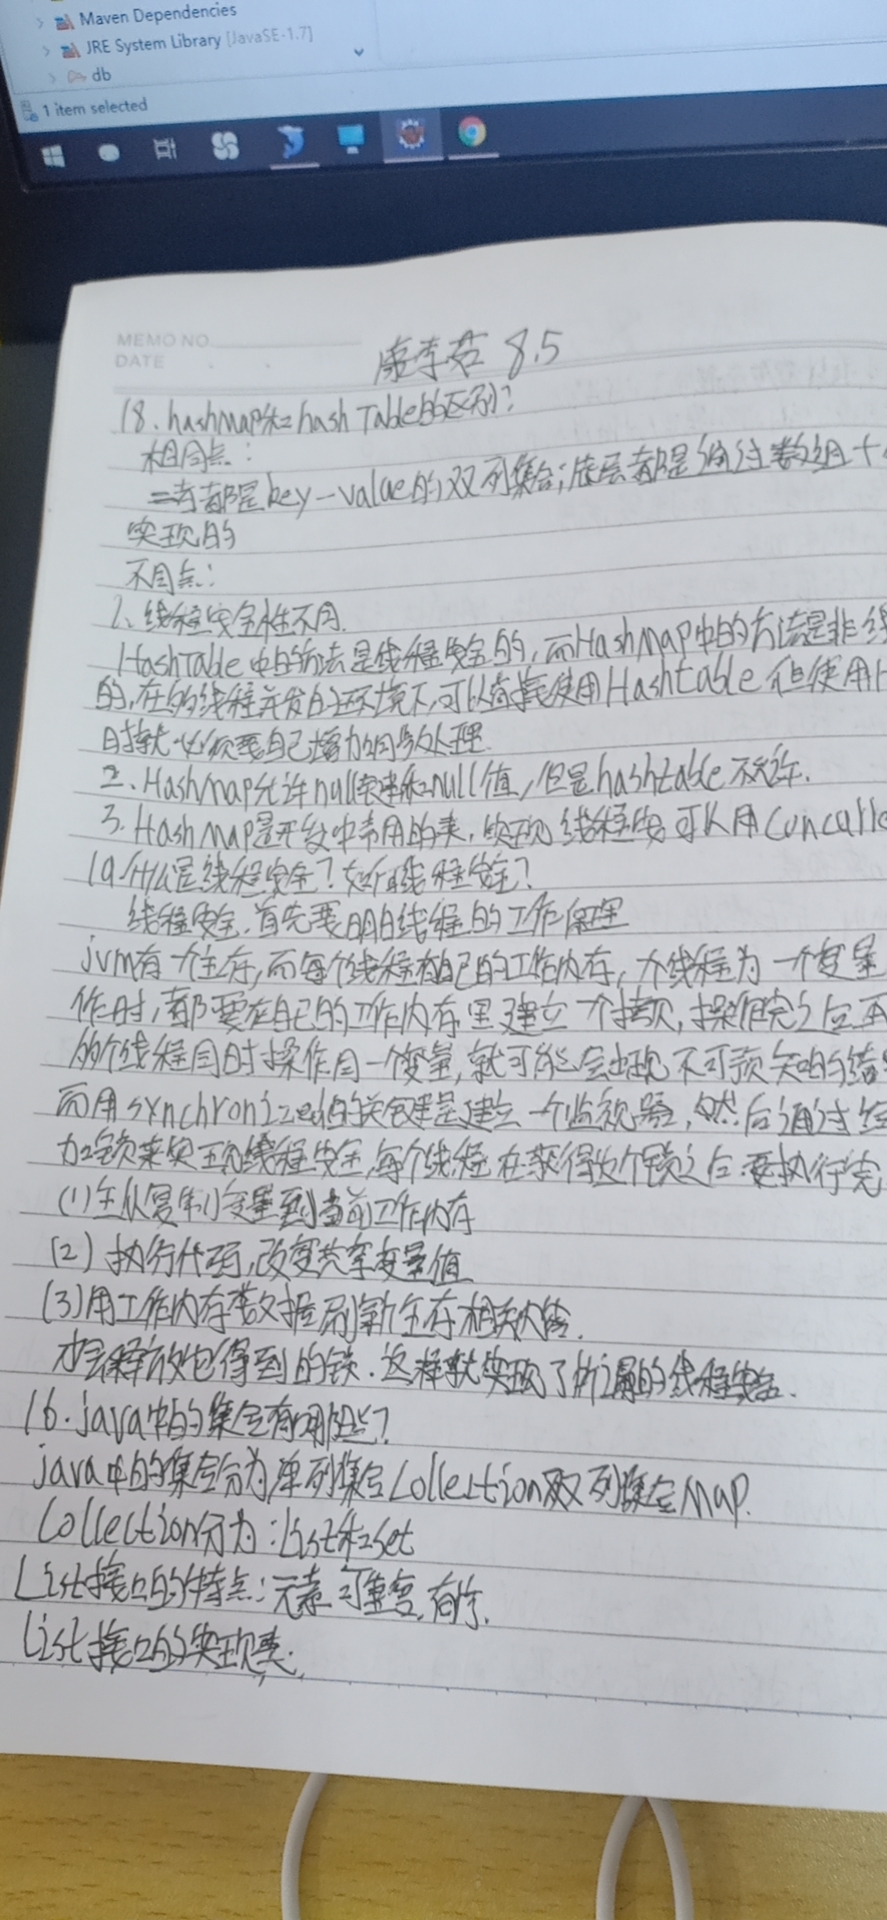 Maven Dependencies
JRE System Library [JavaSE-1.7]
db
1 item selected
MEMO NO.
DATE
8.5
18.hashMap和hashTable的区别?
相同点:
二者都是key-value的双列集合;底层都是通过数组+
实现的
不同点:
1、线程安全性不同.
HashTable中的方法是线程安全的,而HashMap中的方法是非线
的,在多线程并发的环境下,可以直接使用Hashtable但使用H
时就必须要自己增加同步处理.
2.HashMap允许null键和null值,但是hashtable不允许.
3.HashMap是开发中常用的类,实现线程安可以用Concurre
19.什么是线程安全?如何线程安全?
线程安全.首先要明白线程的工作原理
jvm有一个主存,而每个线程有自己的工作内存,一个线程为一个变量
作时,都要在自己的工作内存里建立一个拷贝,操作完之后再
多个线程同时操作同一个变量,就可能会出现不可预知的结
而用synchronized的关键是建立一个监视器,然后通过
加锁来实现线程安全,每个线程在获得这个锁之后.要执行完
(1)主从复制变量到当前工作内存
(2)执行代码,改变共享变量值
(3)用工作内存数据刷新主存相关内容.
才会释放它得到的锁.这样就实现了所谓的线程安全.
16.java中的集合有哪些?
java中的集合分为单列集合Collection双列集合Map.
Collection分为:List和Set
List接口的特点:元素可重复,有序.
List接口的实现类: